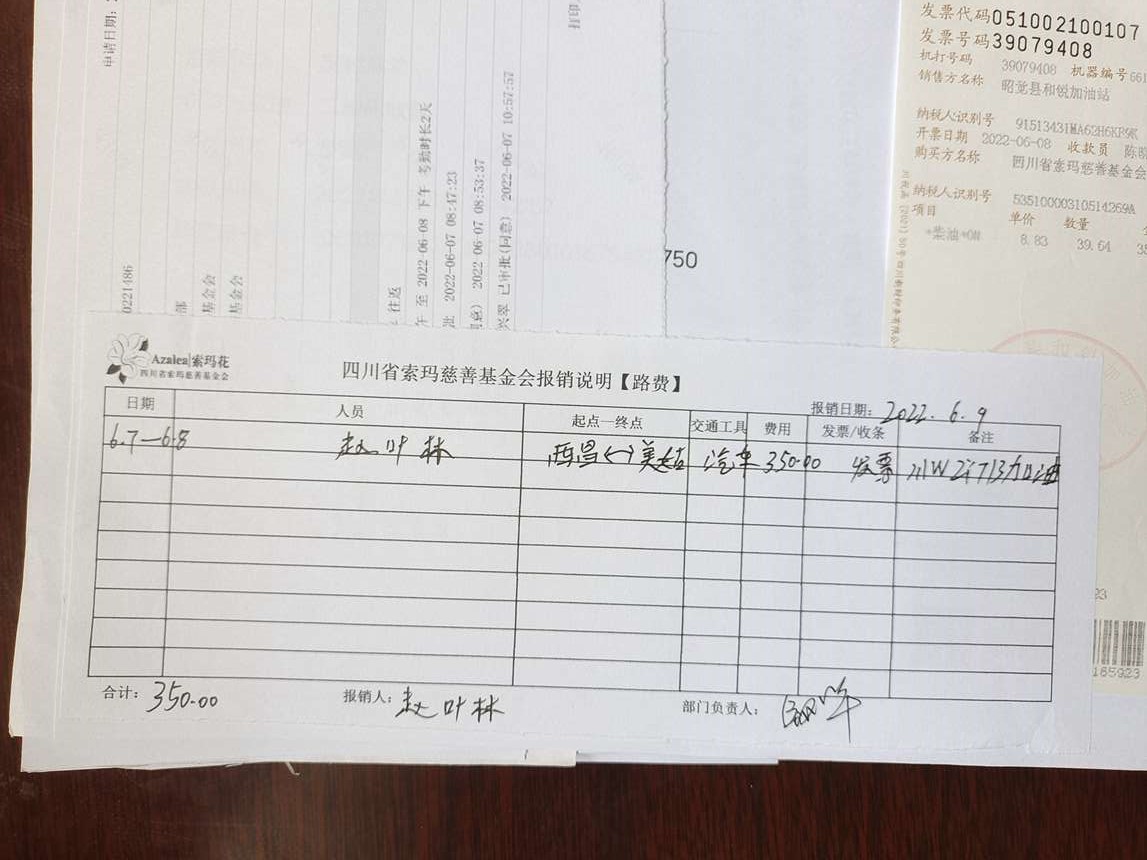 申请日期：
打印
0221486
部
基金会
基金会
往返
午 至 2022-06-08 下午 考勤时长2天
批 2022-06-07 08:47:23
意) 2022-06-07 08:53:37
兴翠 已审批(同意) 2022-06-07 10:57:57
750
发票代码051002100107
发票号码39079408
机打号码 39079408 机器编号661
销售方名称 昭觉县和锐加油站
纳税人识别号 91513431MA62H6KF9K
开票日期 2022-06-08 收款员 陈
购买方名称 四川省索玛慈善基金会
纳税人识别号 53510000310514269A
项目 单价 数量
*柴油*0# 8.83 39.64 35
Azalea|索玛花
四川省索玛慈善基金会
四川省索玛慈善基金会报销说明【路费】
报销日期：2022.6.9
日期 人员 起点—终点 交通工具 费用 发票/收条 备注
6.7—6.8 赵叶林 西昌<->美姑 汽车 350.00 发票 川W 加油
合计：350.00 报销人：赵叶林 部门负责人：
23
165923